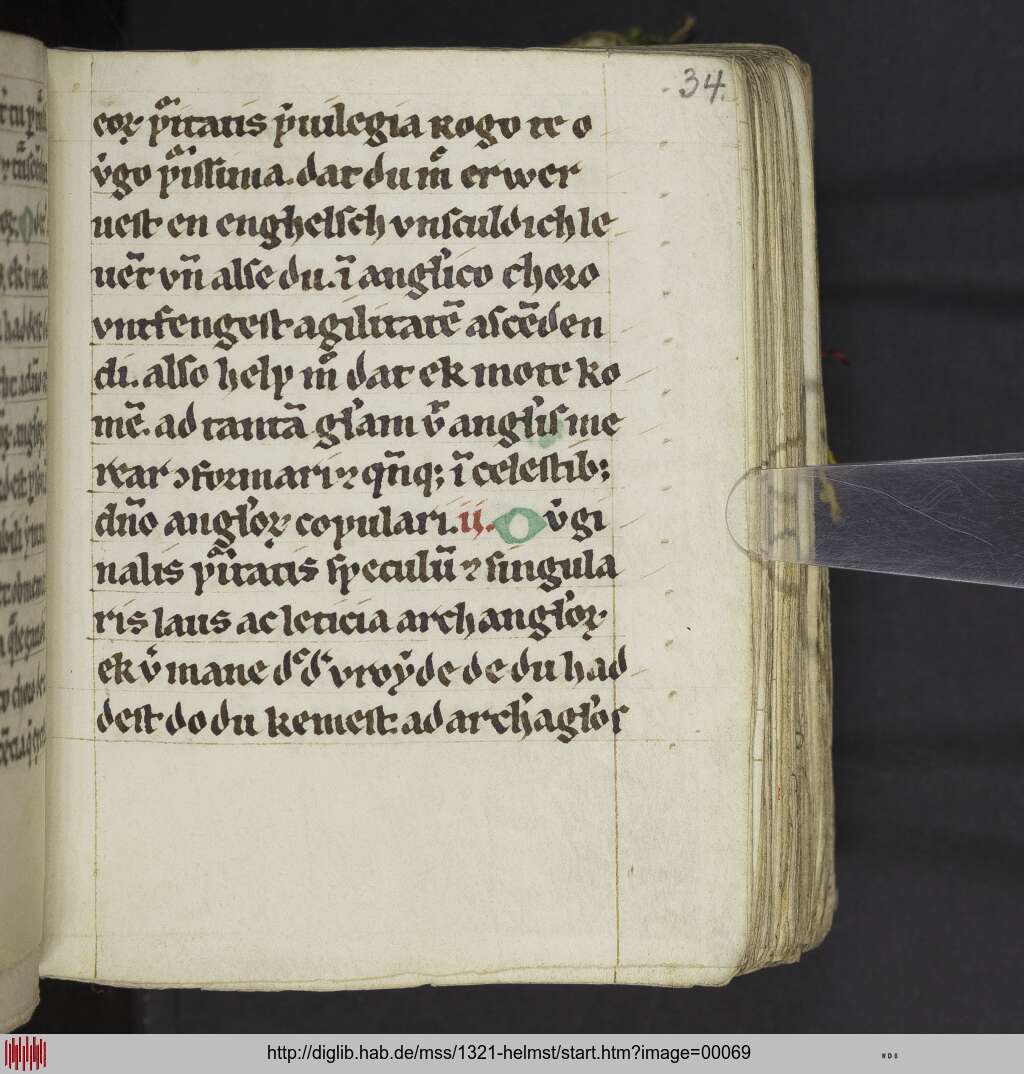 34.
eoꝝ pͥitatis pͥuilegia rogo te o
vͥgo pͥissima. dat du mͥ erwer
uest en enghelsch vnsculdich le
uēt vn̄ alse du. ī anglꝰico choro
vntfengest agilitatē ascēden
di. also help mͥ dat ek mote ko
mē. ad tantā glꝰam vͥ anglꝰis me
rear ꝯformari ⁊ qn̄qꝫ ī celestibꝫ
dn̄o anglꝰoꝝ copulari. ii. O vͥgi
nalis pͥitatis speculū ⁊ singula
ris laus ac leticia archanglꝰoꝝ
ek vͥmane dͤ dͬ vroẏde de du had
dest do du kemest. ad archāglꝰos
http://diglib.hab.de/mss/1321-helmst/start.htm?image=00069